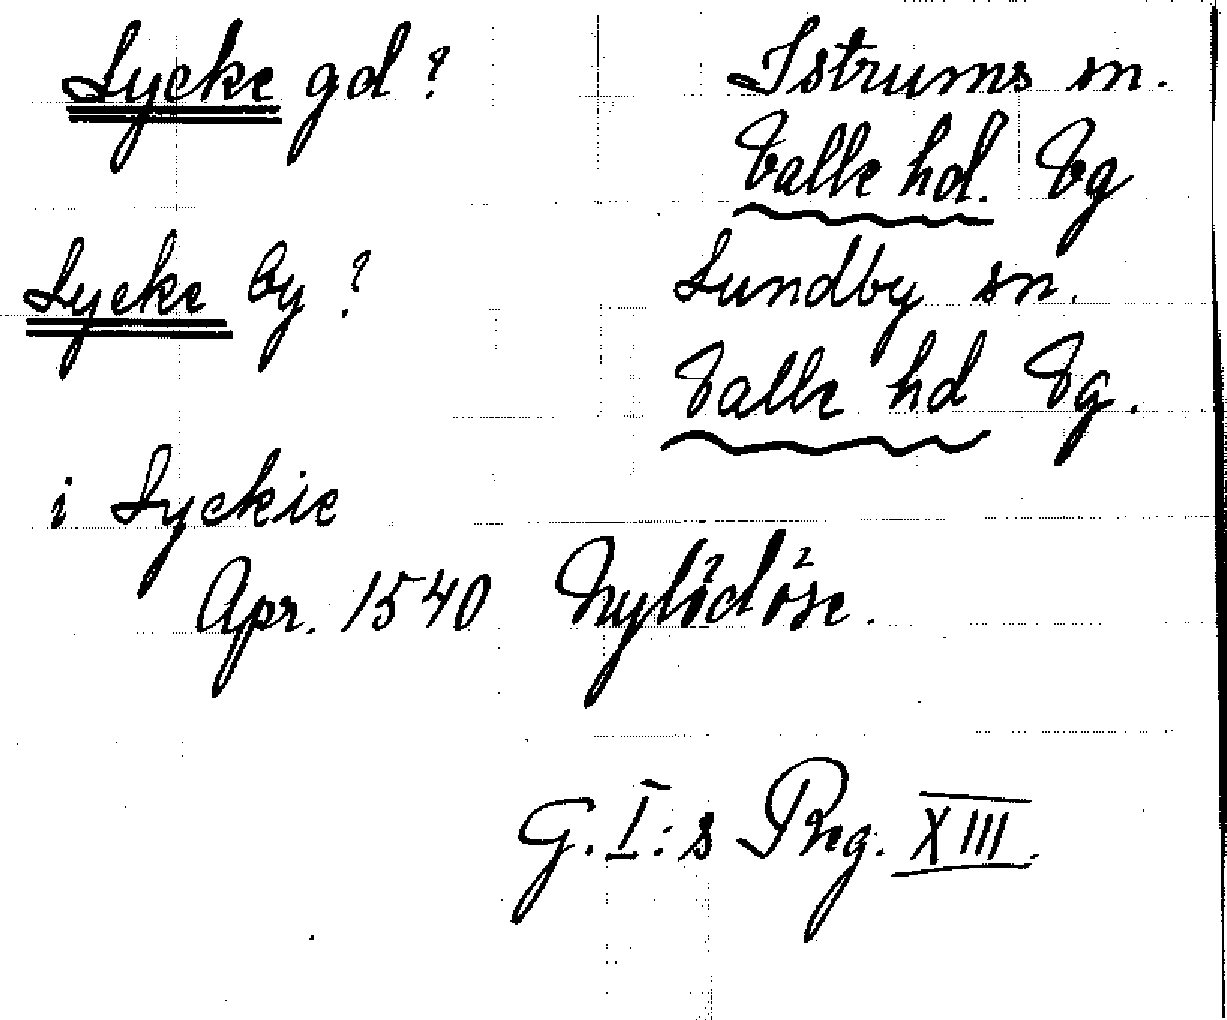 Lycke gd ? Istrums sn.
Valle hd. Vg
Lycke by ? Lundby sn.
Valle hd Vg.
i Lyckie
Apr. 1540 Nylödöse.
G. I:s Reg. XIII.